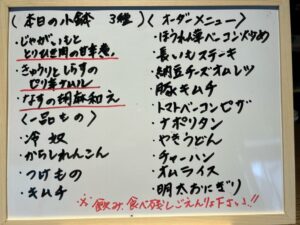 〈本日の小鉢 3種〉
・じゃがいもと
とりひき肉の甘辛煮。
・きゅうりとしらすの
ピリ辛ナムル
・なすの胡麻和え
〈一品もの〉
・冷奴
・からしれんこん
・つけもの
・キムチ
〈オーダーメニュー〉
・ほうれん草ベーコン炒め
・長いもステーキ
・納豆チーズオムレツ
・豚キムチ
・トマトベーコンピザ
・ナポリタン
・やきうどん
・チャーハン
・オムライス
・明太おにぎり
※飲み、食べ残しごえんりょ下さい!!